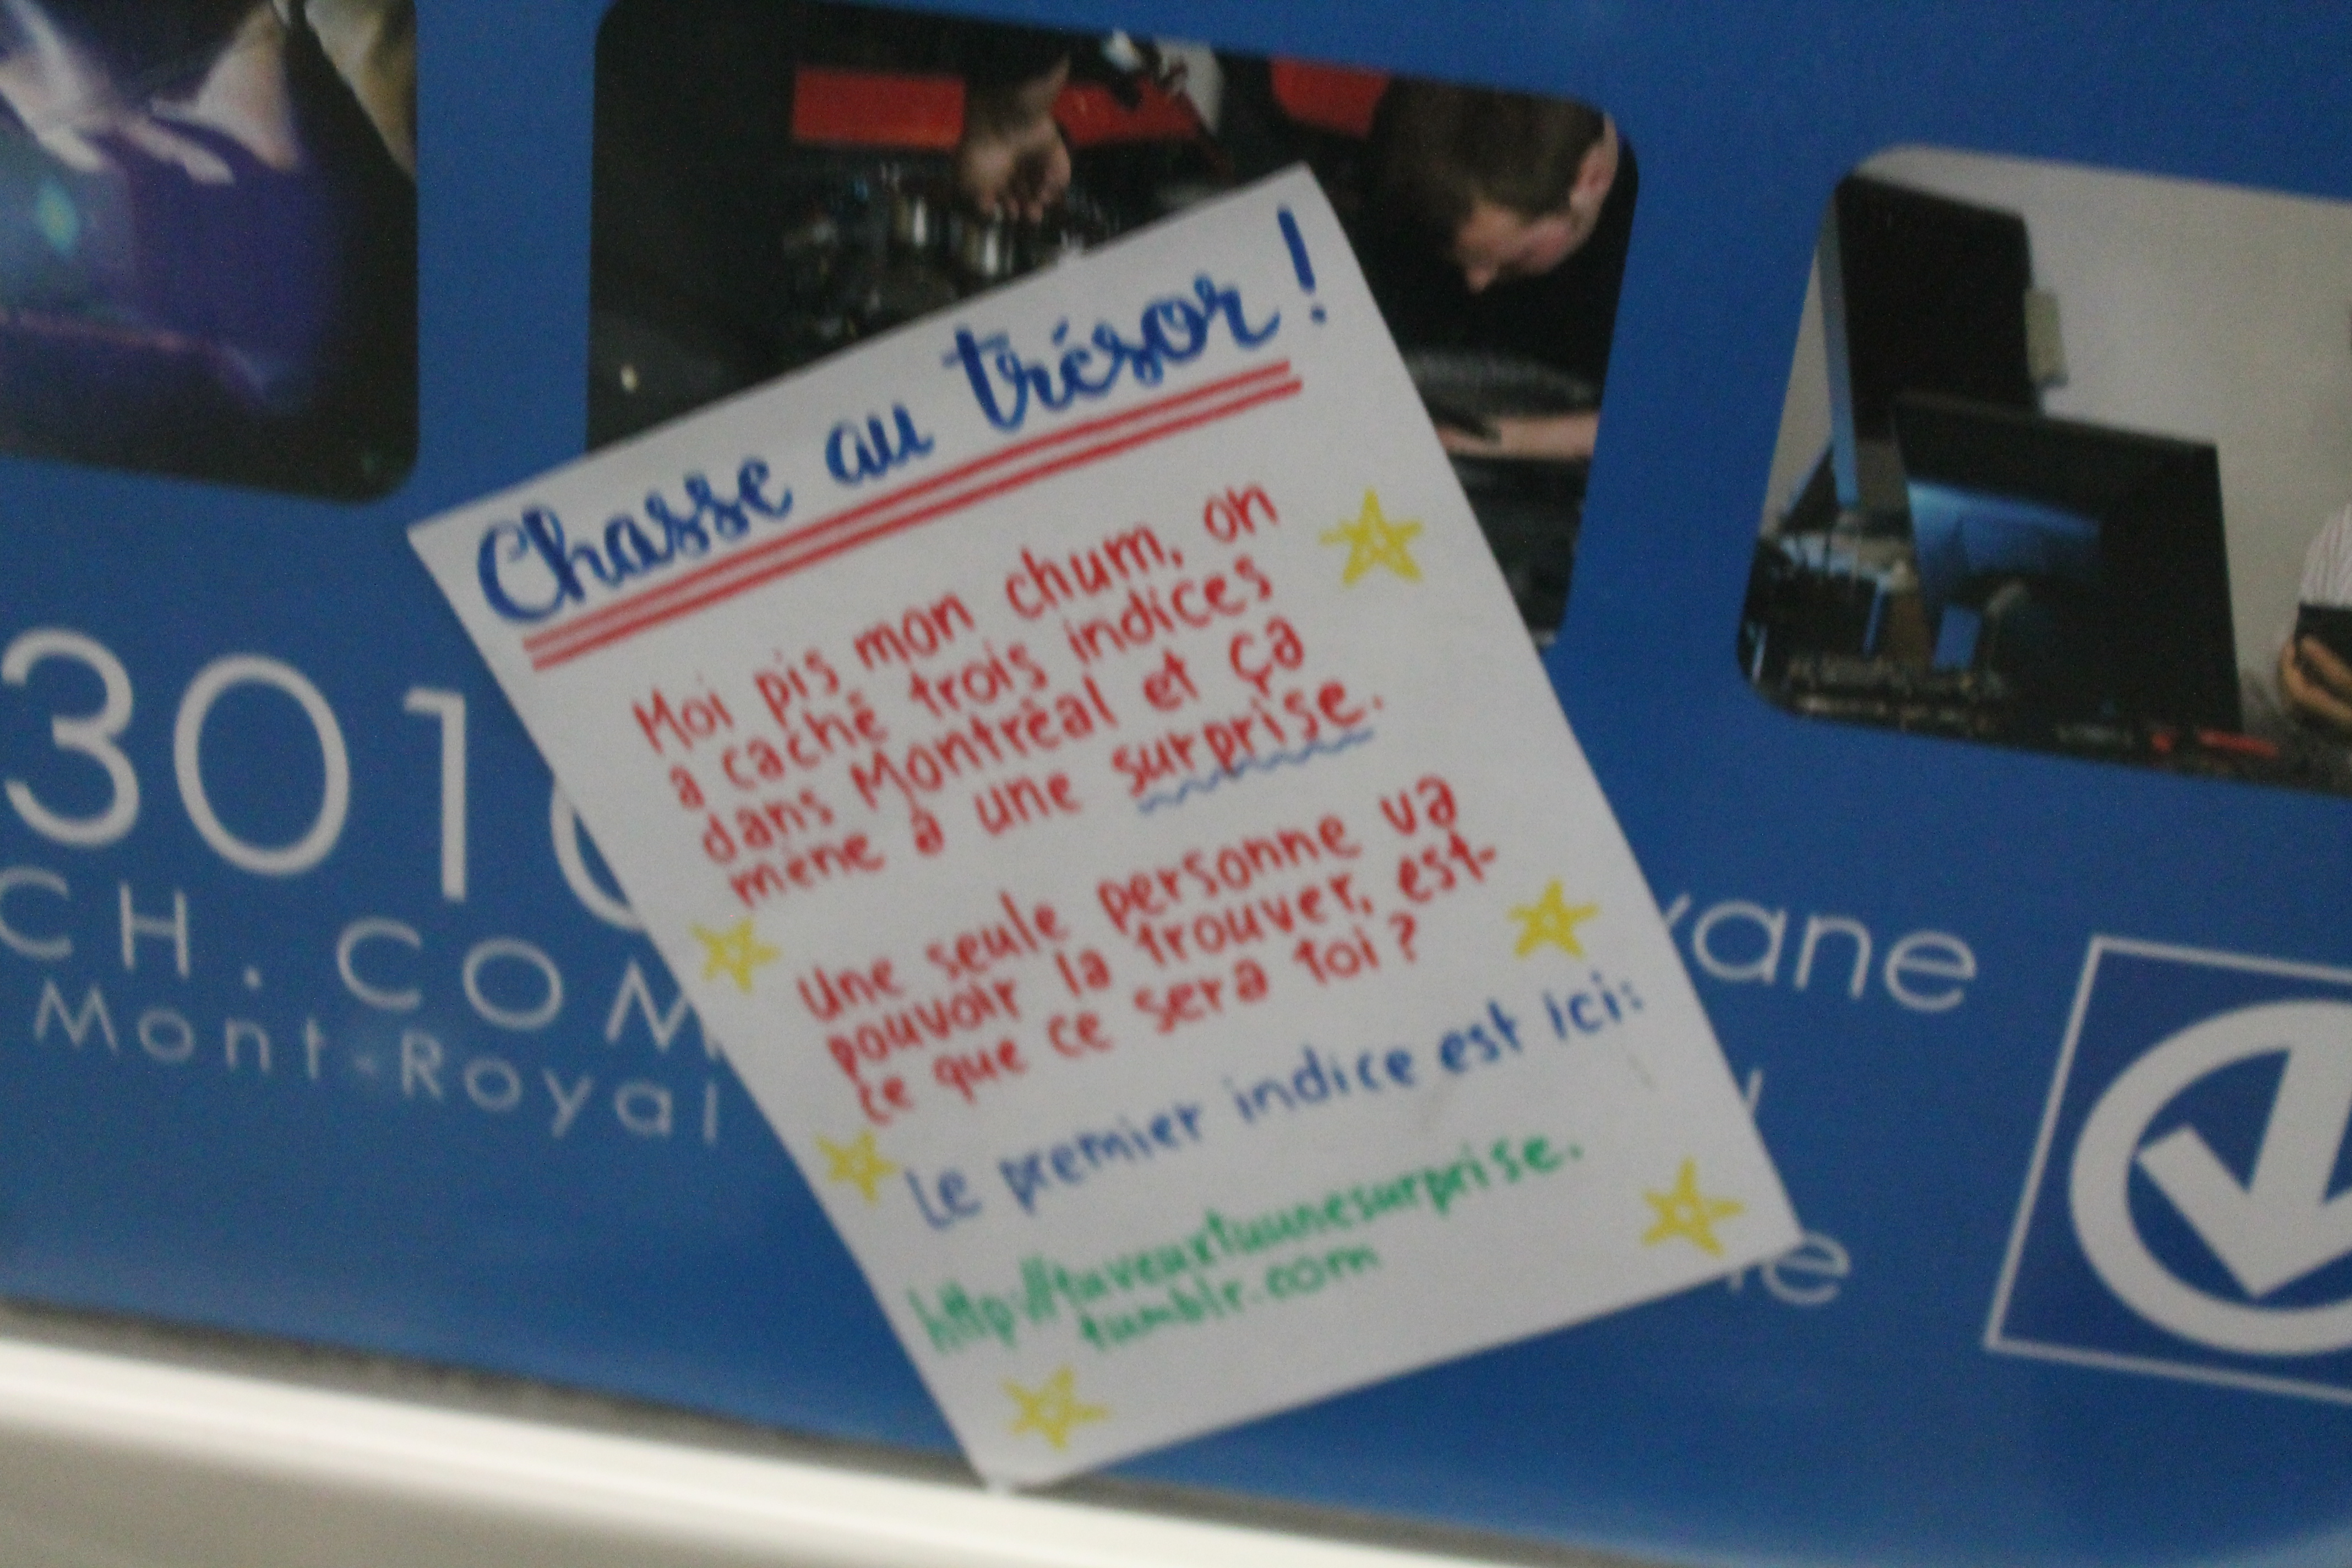 Chasse au trésor!
Moi pis mon chum, on
a caché trois indices
dans Montréal et ça
mène à une surprise.
Une seule personne va
pouvoir la trouver, est-
ce que ce sera toi ?
Le premier indice est ici:
http://tuveuxtuunesurprise.
tumblr.com
301
CH.COM
Mont-Royal